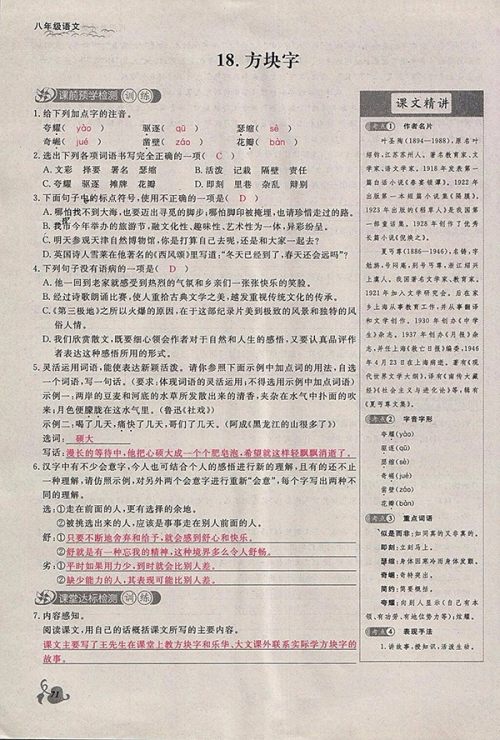 八年级语文
18.方块字
课前预学检测 训练
1.给下列加点字的注音。
夸耀( yào ) 驱逐( qū ) 瑟缩( sè )
奇崛( jué ) 凿壁( záo ) 花瓣( bàn )
2.选出下列各项词语书写完全正确的一项( C )
A.文彩 择要 署名 瑟缩 B.活泼 记载 隔壁 责任
C.夸耀 驱逐 摊牌 花瓣 D.即刻 里巷 杂乱 辩别
3.下面句子中的标点符号,使用不正确的一项是( D )
A.哪怕找不到大海,也要迈出寻觅的脚步;哪怕脚印被掩埋,也请珍惜走过的路。
B.我市今年举办的旅游节,融文化性、趣味性、艺术性为一体,异彩纷呈。
C.明天参观天津自然博物馆,你是打算自己去呢,还是和大家一起去?
D.英国诗人雪莱在他著名的《西风颂》里写道:“冬天已经到了,春天还会远吗?”
4.下列句子没有语病的一项是( D )
A.他一回到老家就感受到热烈的气氛和乡亲们一张张快乐的笑脸。
B.经过诗歌朗诵比赛,使人重拾古典文学之美,越发重视传统文化的传承。
C.《第三极地》之所以火爆的原因,在于这部纪录片美到极致的风景和独特的风
俗人情。
D.我们欣赏散文,既要细心领会作者对于自然和人生的感悟,又要认真品评作
者表达这种感悟所用的形式。
5.灵活运用词语,能使表达新颖活泼。请你参照下面示例中加点词的用法,自选
一个词语,写一句话。(要求:体现词语的灵活运用,不得选用示例中加点词语)
示例一:两岸的豆麦和河底的水草所发散出来的清香,夹杂在水气中扑面的吹
来;月色便朦胧在这水气里。(鲁迅《社戏》)
示例二:喝了几天,痛快了几天,哥们了几天。(阿成《黑龙江的山很多了》)
选词: 硕大
写话:漫长的等待中,他把心硕大成一个个肥皂泡,希望就这样轻飘飘消逝了。
6.汉字中有不少会意字,今人也可结合个人的感悟进行新的理解,且有的还不止
一种理解,请仿照示例,对另外两个会意字进行重新“会意”,每个字写出两种不
同的理解。
选:①走在前面的人,更有选择的余地。
②被挑选出来的人,应该是事事走在别人前面的人。
舒:①只要不断地舍弃和给予,就会感到舒心和快乐。
②舒就是有一种忘我的精神,这种境界多么令人舒畅。
劣:①平时如果用力少,到时就会比别人差。
②缺少能力的人,其表现可能比别人差。
课堂达标检测 训练
7.内容感知。
阅读课文,用自己的话概括课文所写的主要内容。
课文主要写了王先生在课堂上教方块字和乐华、大文课外联系实际学方块字的
故事。
71
课文精讲
考点1 作者名片
叶圣陶(1894—1988),原名叶
绍钧,江苏苏州人。著名教育家、文
学家、语文学家。1918年发表第一
篇白话小说《春宴琐谭》。1922年
出版第一本短篇小说集《隔膜》,
1923年出版的《稻草人》是我国第
一部童话集。1928年创作了优秀
长篇小说《倪焕之》。
夏丏尊(1886—1946),名铸,字
勉旃,号闷庵,别号丏尊,浙江绍兴
上虞人。我国著名文学家、教育家。
1921年加入文学研究会。后在家
乡上海从事教育工作,并从事翻译
和文学创作。1930年创办《中学
生》杂志。1937年创办《月报》杂
志,并任上海《救亡日报》编委。1946
年4月23日在上海病逝。著有《现
代世界文学大纲》,译有《南传大藏
经》《社会主义与进化论》等,辑有
《夏丏尊文集》。
考点2 字音字形
夸耀(yào)
驱逐(qū)
瑟缩(sè)
奇崛(jué)
凿壁(záo)
花瓣(bàn)
考点3 重点词语
似是而非:如同真的又非真的。
即刻:立刻马上。
瑟缩:身体因寒冷而身体发颤。
奇崛:奇特突出。
简约:简要。
夸耀:向别人显示(自己有本
领、有功劳、有地位势力等);炫耀。
考点4 表现手法
1.讲故事,授知识,活泼生动。